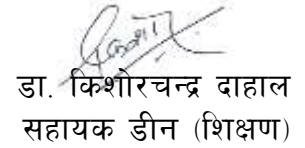 डा. किशोरचन्द्र दाहाल
सहायक डीन (शिक्षण)